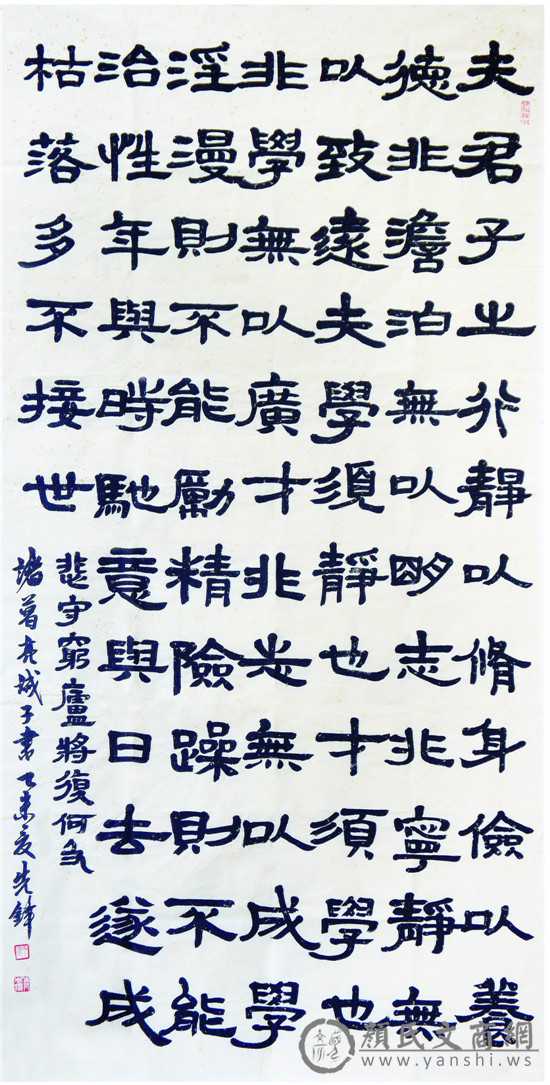 夫君子之行靜以脩身儉以養
德非澹泊無以明志非寧靜無
以致遠夫學須靜也才須學也
非學無以廣才非志無以成學
淫漫則不能勵精險躁則不能
治性年與時馳意與日去遂成
枯落多不接世
悲守窮廬將復何及
諸葛亮誡子書乙未夏先鋒
顏氏文商網
www.yanshi.ws